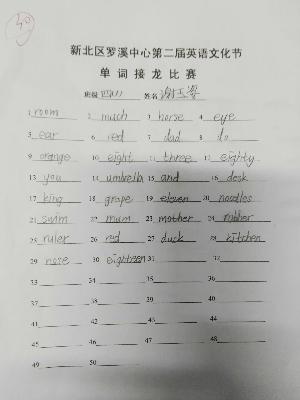 30
新北区罗溪中心第二届英语文化节
单词接龙比赛
班级 四(1) 姓名
1 room 2 much 3 horse 4 eye
5 ear 6 red 7 dad 8 do
9 orange 10 eight 11 three 12 eighty
13 you 14 umbrella 15 and 16 desk
17 king 18 grape 19 eleven 20 noodles
21 swim 22 mum 23 mother 24 rubber
25 ruler 26 red 27 duck 28 kitchen
29 nose 30 eighteen 31 32
33 34 35 36
37 38 39 40
41 42 43 44
45 46 47 48
49 50